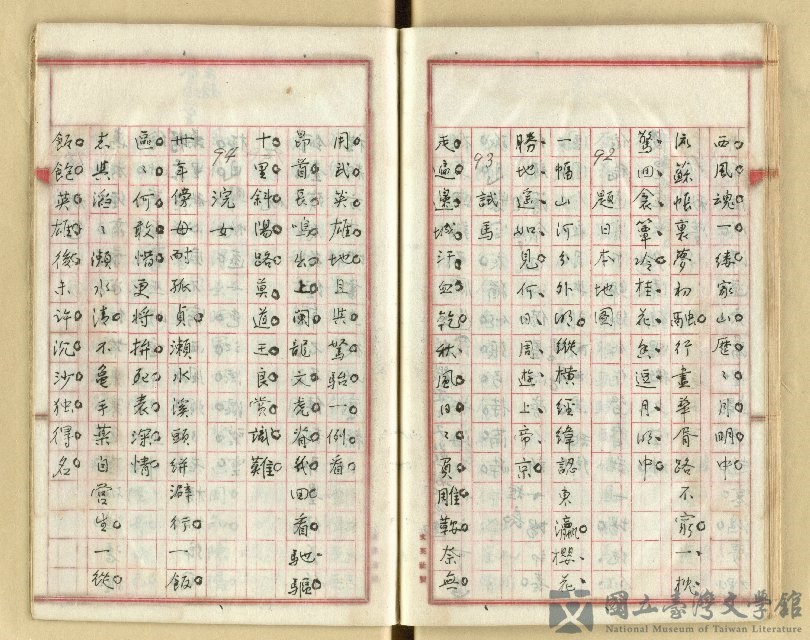 西風魂一縷家山歷〻月明中
流蘇帳裏夢初融行盡華胥路不窮一枕
驚回衾簟冷桂花香逗月明中
92 題日本地圖
一幅山河分外明縱橫經緯認東瀛櫻花
勝地遙如見何日周遊上帝京
93 試馬
走遍邊城汗血乾秋風日〻負雕鞍奈無
用武英雄地且與駑駘一例看
昂首長鳴出上闌龍文虎脊幾回看馳驅
十里斜陽路莫道王良賞識難
94 浣女
卅年傍母耐孤貞瀨水溪頭絣澼行一飯
區〻何敢惜更將拚死表深情
志與滔〻瀨水清不龜手藥自營生一從
飯飽英雄後未許沉沙独得名
國立臺灣文學館
National Museum of Taiwan Literature